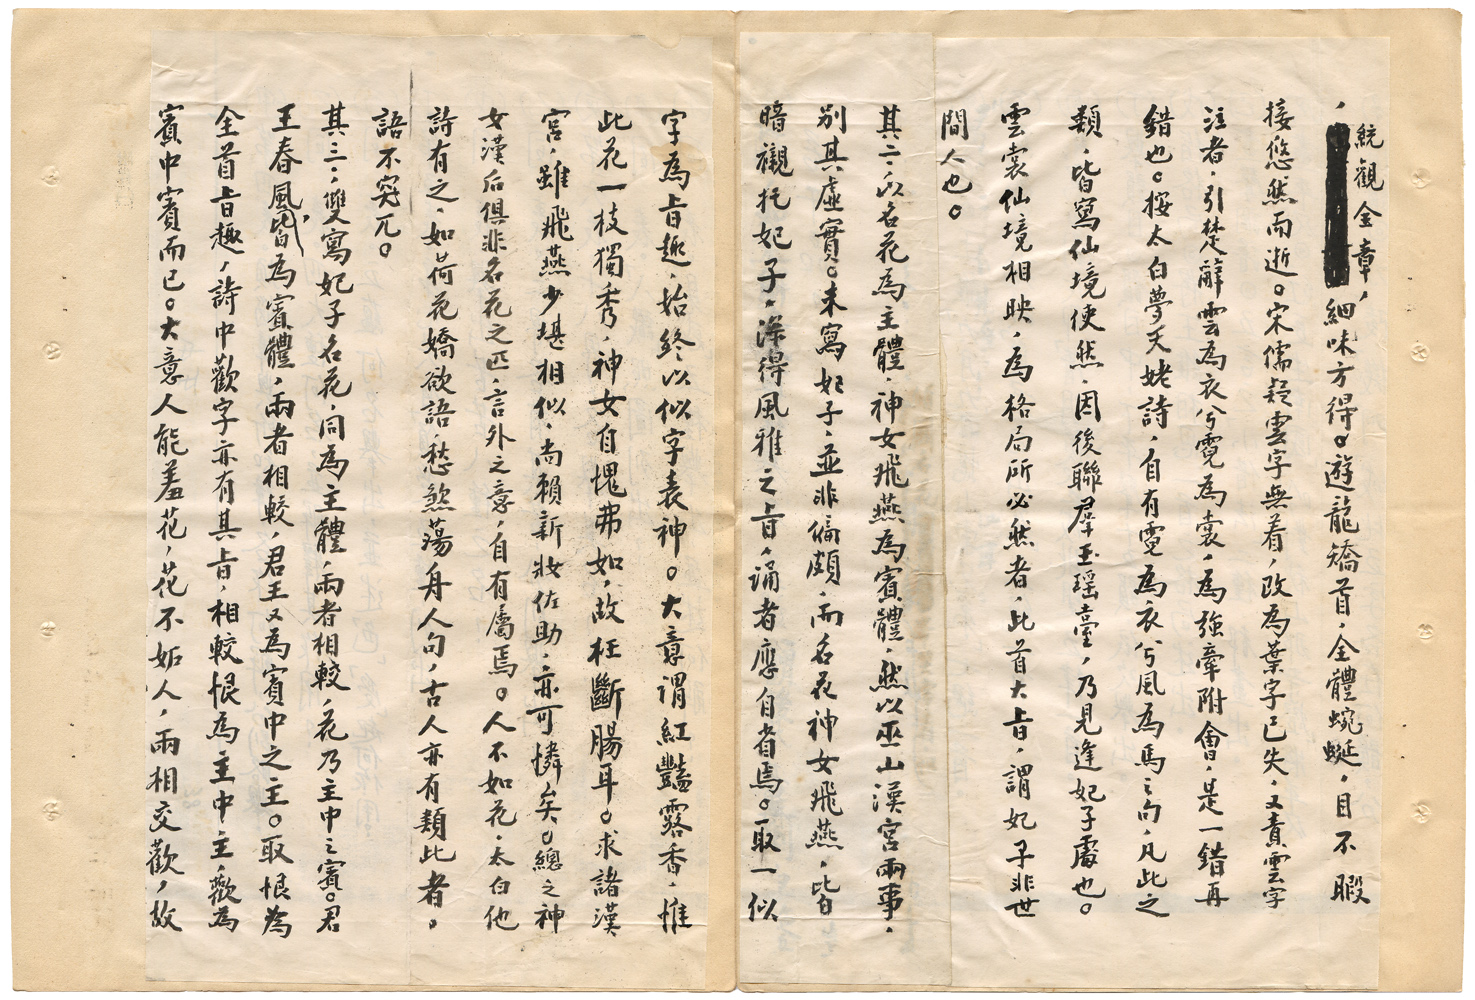 統觀全章，
細味方得。遊龍矯首，全體蜿蜒，目不暇
接悠然而逝。宋儒疑雲字無着，改為葉字已失，又責雲字
注者，引楚辭雲為衣兮霓為裳，為強牽附會，是一錯再
錯也。按太白夢天姥詩，自有霓為衣兮風為馬之句，凡此之
類，皆寫仙境使然，因後聯羣玉瑶臺，乃見逢妃子處也。
雲裳仙境相映，為格局所必然者，此首大旨，謂妃子非世
間人也。
其二：以名花為主體，神女飛燕為賓體，然以巫山漢宮兩事，
別其虛實。未寫妃子，並非偏頗，而名花神女飛燕，皆
暗襯托妃子，深得風雅之旨，誦者應自省焉。取一似
字為旨趣，始終以似字表神。大意謂紅豔露香，惟
此花一枝獨秀，神女自愧弗如，故枉斷腸耳。求諸漢
宮，雖飛燕少堪相似，尚賴新妝佐助，亦可憐矣。總之神
女漢后俱非名花之匹，言外之意，自有屬焉。人不如花，太白他
詩有之，如荷花嬌欲語，愁煞蕩舟人句，古人亦有類此者。
語不突兀。
其三：雙寫妃子名花，同為主體，兩者相較，花乃主中之賓。君
王春風，皆為賓體，兩者相較，君王又為賓中之主。取恨為
全首旨趣，詩中歡字亦有其旨，相較恨為主中主，歡為
賓中賓而已。大意人能羞花，花不妬人，兩相交歡，故